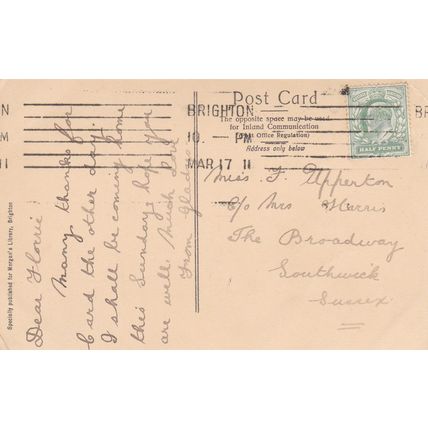 Post Card
The opposite space may be used
for Inland Communication
(Post Office Regulation)
Address only below
BRIGHTON
10. - PM
MAR 17 11
BR
HALF PENNY
Dear Florrie
Many thanks for
Card the other day.
I shall be coming home
this Sunday, hope you
are well. Much Love
From Gladys
Miss F. Upperton
c/o Mrs Harris
The Broadway
Southwick
Sussex
Specially published for Morgan's Library, Brighton